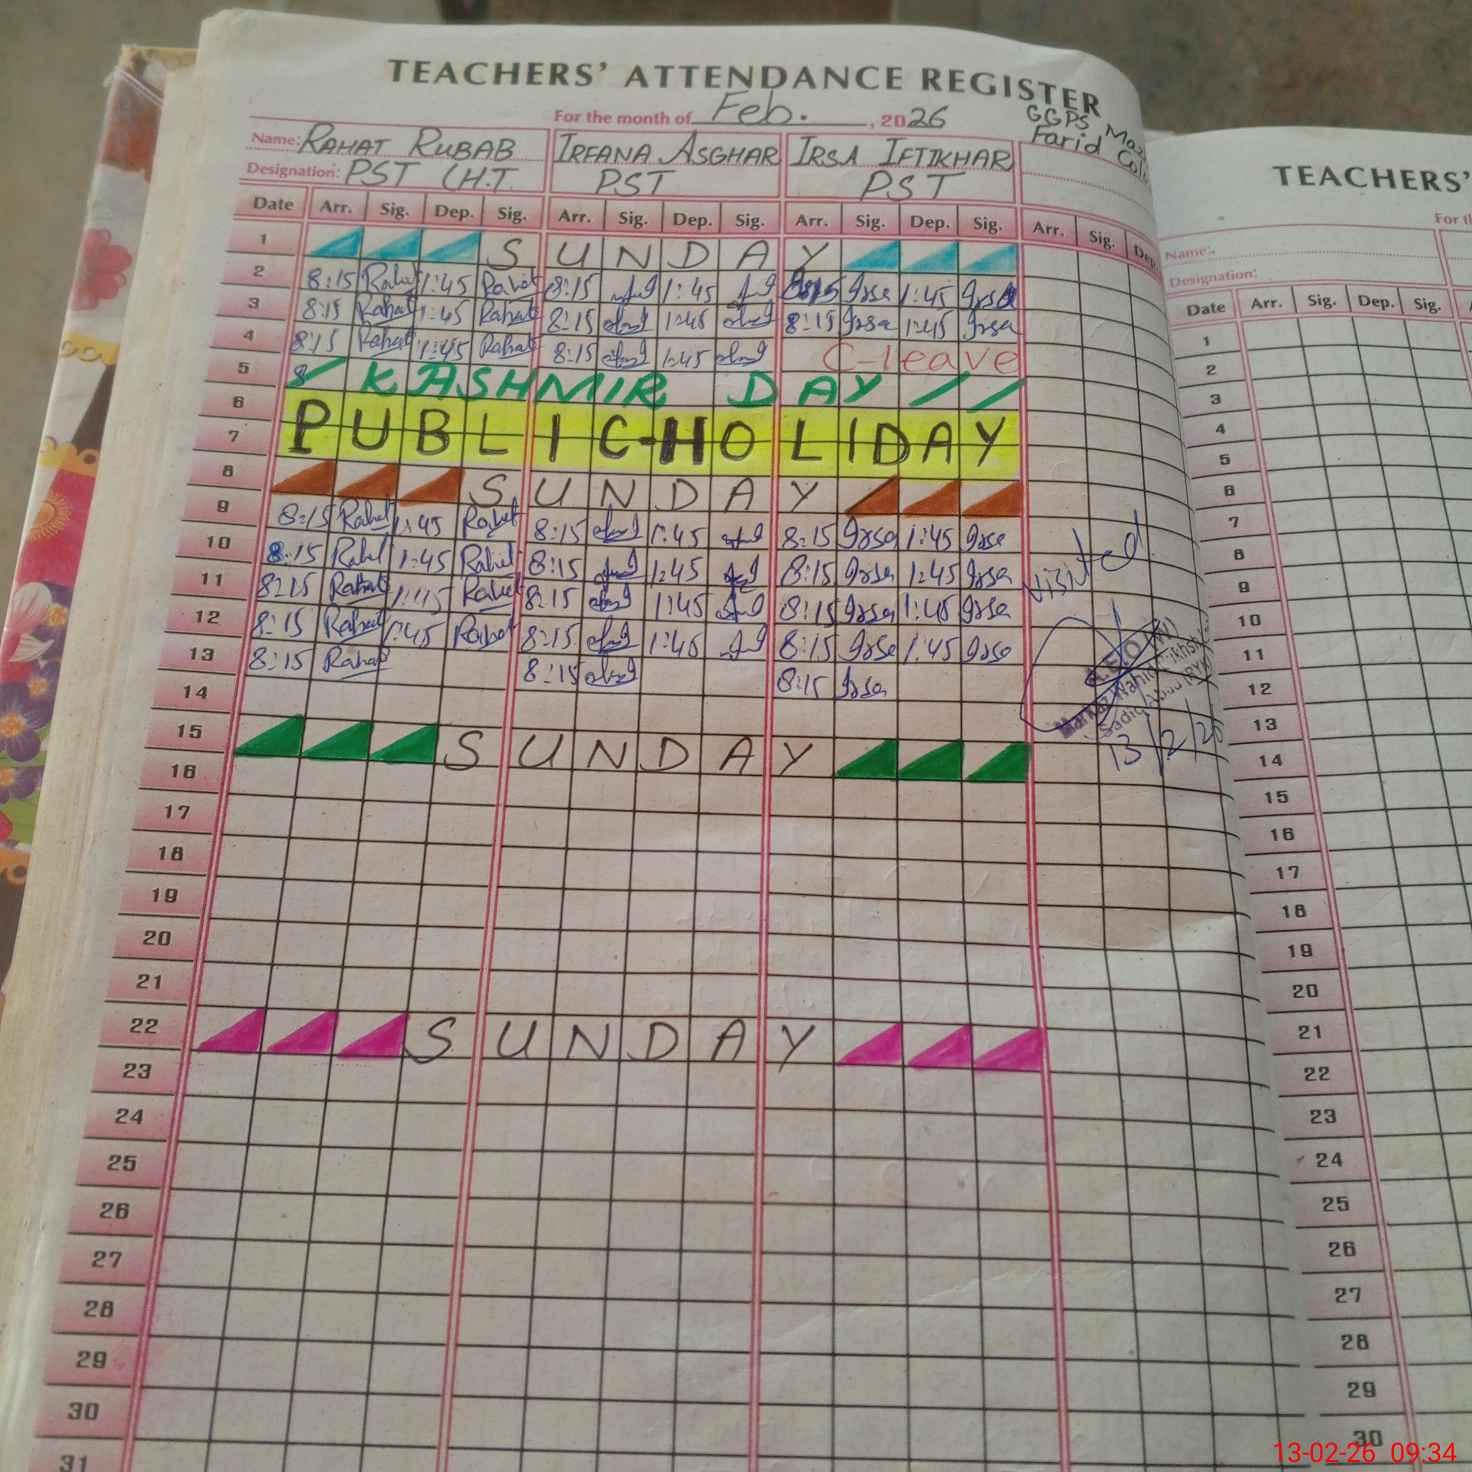 TEACHERS' ATTENDANCE REGISTER
For the month of Feb. , 2026
GGPS Maz
Farid Colo
Name: RAHAT RUBAB IRFANA ASGHAR IRSA IFTIKHAR
Designation: PST (H.T. PST PST
Date Arr. Sig. Dep. Sig. Arr. Sig. Dep. Sig. Arr. Sig. Dep. Sig. Arr. Sig. Dep.
1 SUNDAY
2 8:15 Rahat 1:45 Rahat 8:15 1:45 8:15 Irsa 1:45 Irsa
3 8:15 Rahat 1:45 Rahat 8:15 1:45 8:15 Irsa 1:45 Irsa
4 8:15 Rahat 1:45 Rahat 8:15 1:45 C-leave
5 KASHMIR DAY
6
7 PUBLIC-HOLIDAY
8 SUNDAY
9 8:15 Rahat 1:45 Rahat 8:15 1:45 8:15 Irsa 1:45 Irsa
10 8:15 Rahat 1:45 Rahat 8:15 1:45 8:15 Irsa 1:45 Irsa
11 8:15 Rahat 1:45 Rahat 8:15 1:45 8:15 Irsa 1:45 Irsa
12 8:15 Rahat 1:45 Rahat 8:15 1:45 8:15 Irsa 1:45 Irsa
13 8:15 Rahat 8:15 8:15 Irsa
14
15 SUNDAY
16
17
18
19
20
21
22 SUNDAY
23
24
25
26
27
28
29
30
31
Visited
A.E.O (W)
Markaz
13/2/26
TEACHERS'
For th
Name:
Designation:
Date Arr. Sig. Dep. Sig.
1
2
3
4
5
6
7
8
9
10
11
12
13
14
15
16
17
18
19
20
21
22
23
24
25
26
27
28
29
30
13-02-26 09:34